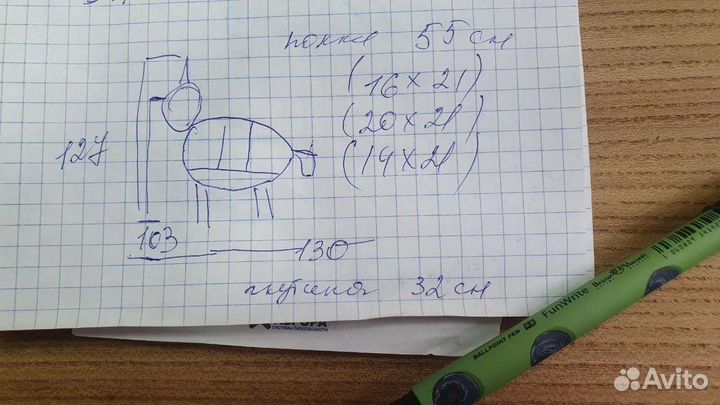 полка 55 см
(16 × 21)
(20 × 21)
127
(14 × 21)
103
130
глубина 32 см
СИСТЕМЫ БЕЗОПАСНОСТИ
BALLPOINT PEN
FunWrite
Bruno Visconti
Avito